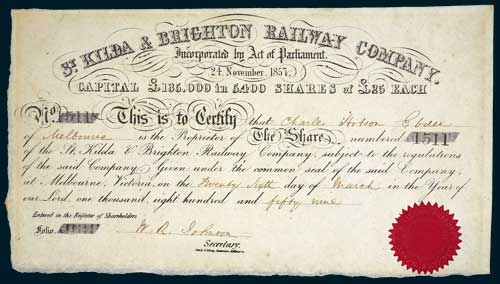 ST KILDA & BRIGHTON RAILWAY COMPANY.
Incorporated by Act of Parliament.
24. November. 1857.
CAPITAL £135.000 in 5400 SHARES of £25 EACH
No. 1511 This is to Certify that Charles Hotson Ebden
of Melbourne is the Proprietor of The Share numbered 1511
of the St. Kilda & Brighton Railway Company, subject to the regulations
of the said Company. Given under the common seal of the said Company,
at Melbourne, Victoria, on the Twenty Sixth day of March in the Year of
our Lord, one thousand, eight hundred and fifty nine
Entered in the Register of Shareholders
Folio 1511 W. R. Johnson
Secretary.